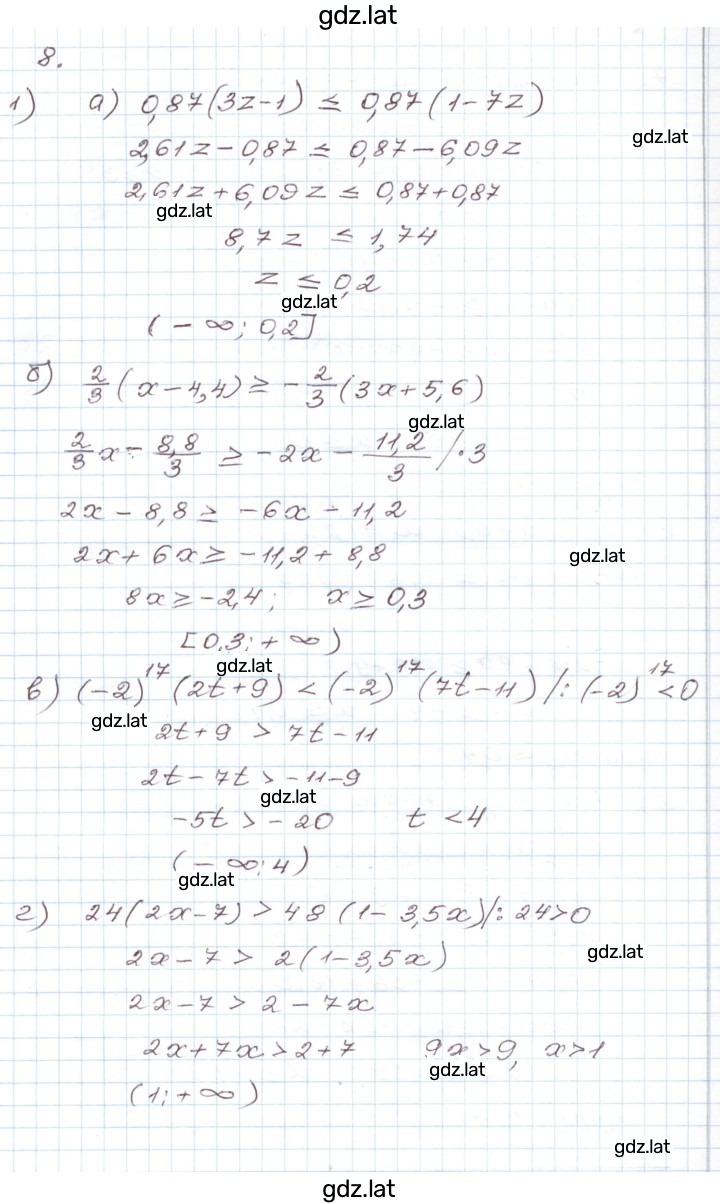 gdz.lat
8.
1) а) 0,87(3z-1) ≤ 0,87(1-7z)
gdz.lat
2,61z - 0,87 ≤ 0,87 - 6,09z
2,61z + 6,09z ≤ 0,87+0,87
gdz.lat
8,7z ≤ 1,74
z ≤ 0,2
gdz.lat
(-∞; 0,2]
б) 2/3 (x-4,4) ≥ -2/3 (3x+5,6)
gdz.lat
2/3 x - 8,8/3 ≥ -2x - 11,2/3 /·3
2x - 8,8 ≥ -6x - 11,2
2x + 6x ≥ -11,2 + 8,8
gdz.lat
8x ≥ -2,4; x ≥ 0,3
[0,3; +∞)
gdz.lat
в) (-2)^17 (2t+9) < (-2)^17 (7t-11) /: (-2)^17 <0
gdz.lat
2t+9 > 7t-11
2t - 7t > -11-9
gdz.lat
-5t > -20 t < 4
(-∞; 4)
gdz.lat
г) 24(2x-7) > 48(1-3,5x) /: 24>0
2x-7 > 2(1-3,5x)
gdz.lat
2x-7 > 2 - 7x
2x+7x > 2+7 9x > 9, x>1
gdz.lat
(1; +∞)
gdz.lat
gdz.lat